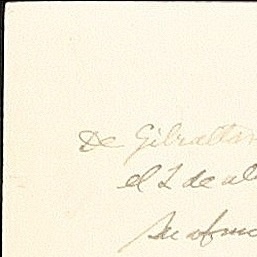 De Gibraltar
el 2 de
Su afmo